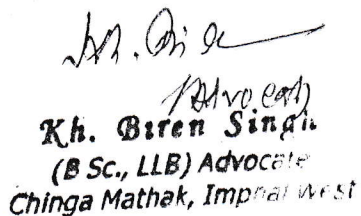 Advocate
Kh. Biren Singh
(B Sc., LLB) Advocate
Chinga Mathak, Imphal West